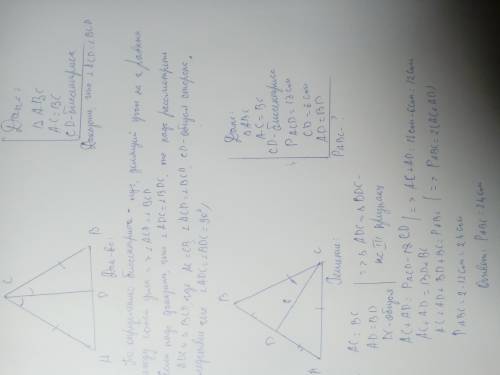 Дано:
Δ ABC
AC = BC
CD-биссектриса
Доказать, что ∠ACD=∠BCD
C
A
D
B
Док-во:
По определению биссектриса - луч, делящий угол на 2 равных
между собой угла => ∠ACD = ∠BCD
Если надо доказать, что ∠ADC = ∠BDC, то надо рассмотреть
ΔADC и ΔBCD, где AC = CB, ∠ACD = ∠BCD, CD-общая сторона,
∠ADC = ∠BDC = 90°
Дано:
Δ ABC
AC = BC
CD-биссектриса
CD = 6 см
AD = BD
P ABC - ?
B
D
C
A
6
Решение:
AC = BC
AD = BD
DC-общая
=> Δ ADC = Δ BDC-
по III признаку
AC + AD = P ACD - CD => AC + AD = 18 см - 6 см = 12 см
AC + AD = BD + BC
AC + AD + BD + BC = P ABC => P ABC = 2(AC + AD)
P ABC = 2 · 12 см = 24 см
Ответ: P ABC = 24 см